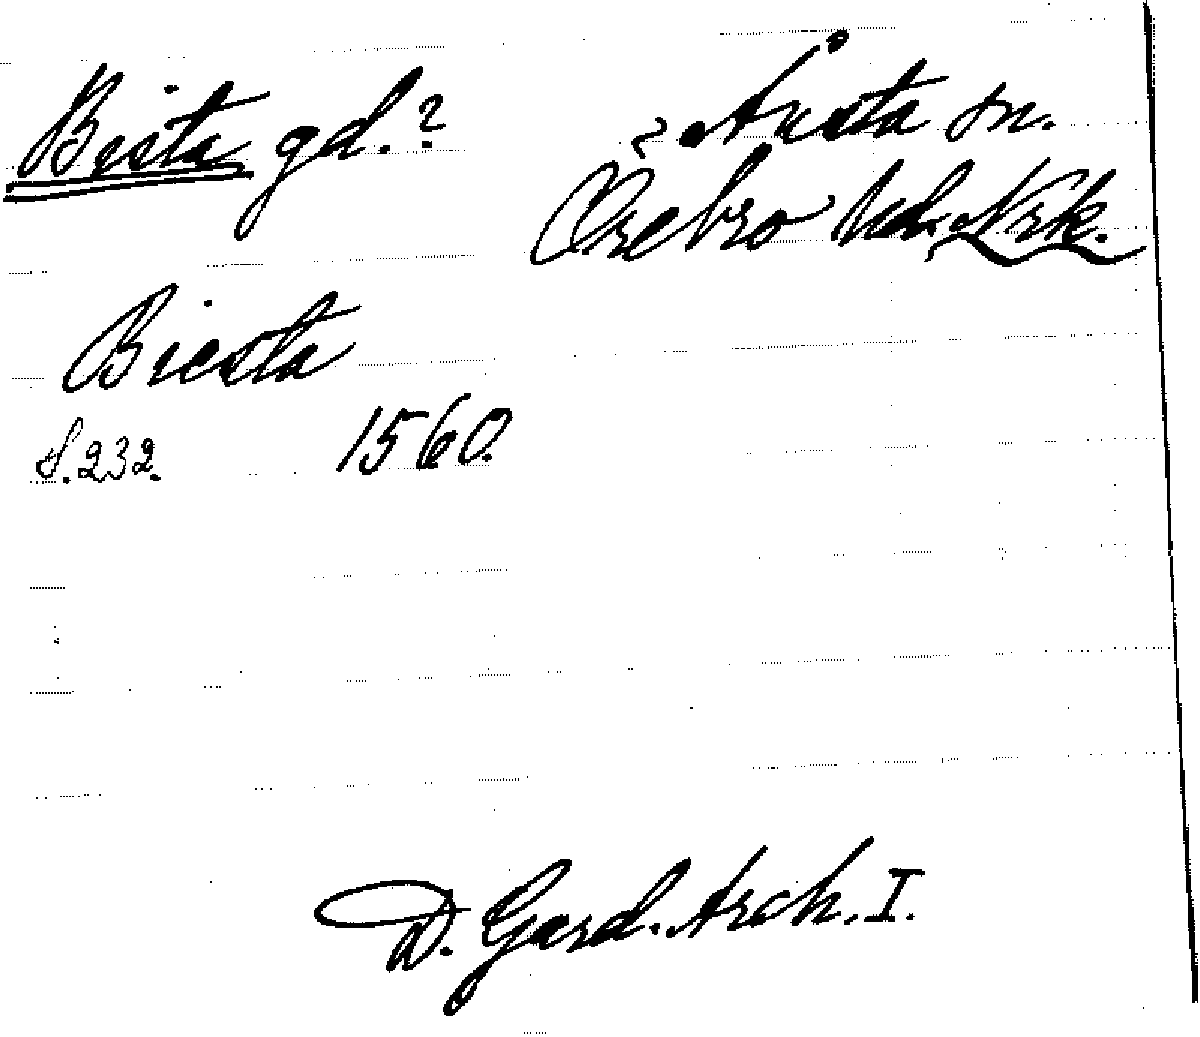 Bista gd.? ? Ånsta sn.
Örebro hd. Nrk.
Biesta
S. 232. 1560.
D. Gard. Arch. I.